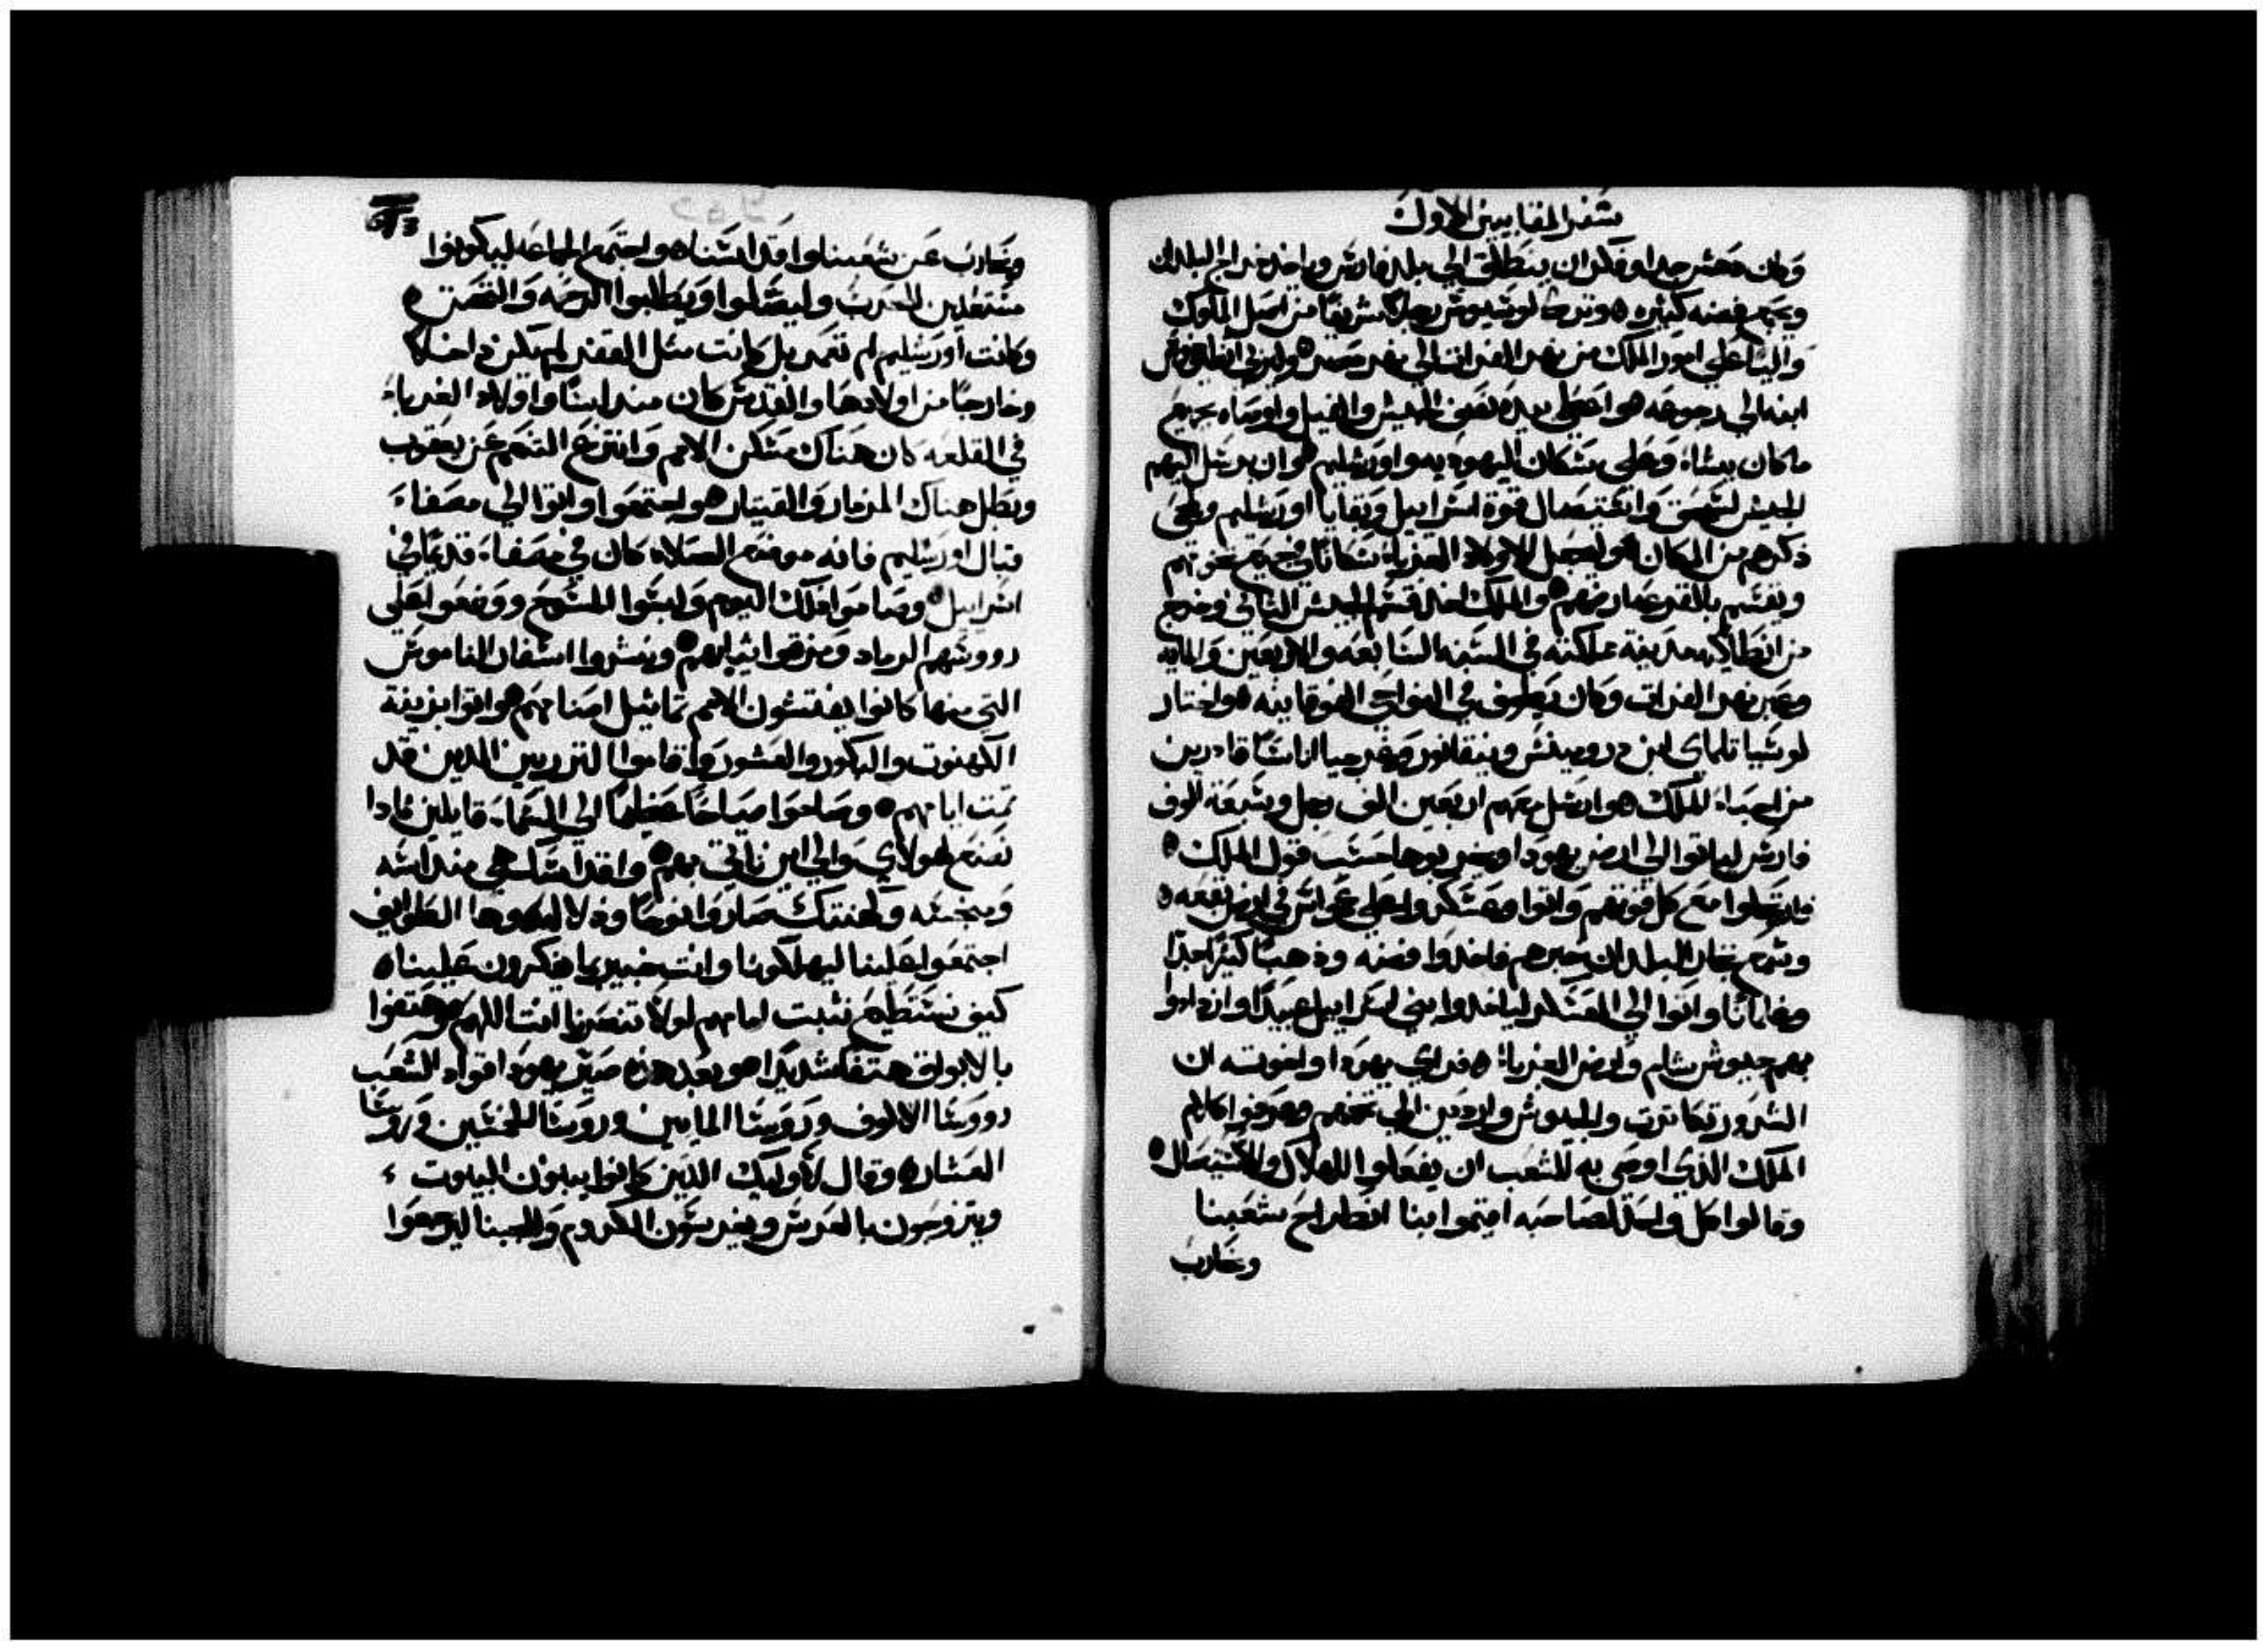 سفر المقابيين الاول
وكان دهش جدا وفكر ان ينطلق الي بلد فارس وياخذ خراج البلدان
ويجمع فضه كثيره وترك لوسيوس رجلا شريفا من اصل الملوك
واليا علي امور الملك من نهر الفرات الي نهر مصر وليربي انطيوخس
ابنه الي رجوعه واعطي بيده نصف الجيش والفيل واوصاه بجميع
ما كان يشاء وعلي سكان اليهوديه واورشليم وان يرسل اليهم
الجيش لسحق واستيصال قوة اسراييل وبقايا اورشليم ويمحي
ذكرهم من المكان وليجعل الاولاد الغربا سكانا في جميع تخومهم
ويقسم بالقرعه ارضهم والملك اخذ قسم الجيش الثاني وخرج
من انطاكيه مدينة مملكته في السنه السابعه والاربعين والمايه
وعبر نهر الفرات وكان يطوف في النواحي الفوقانيه واختار
لوسيا تلماي ابن درومينس ونيقانور وغرجيا اناسا قادرين
من احباء الملك وارسل معهم اربعين الف رجل وسبعة الوف
فارس لياتوا الي ارض يهودا ويخربوها حسب قول الملك
فارتحلوا مع كل قوتهم واتوا وعسكروا علي عمواس في ارض بقعه
وسمع تجار البلدان خبرهم فاخذوا فضه وذهبا كثيرا جدا
وغلمانا واتوا الي العسكر لياخذوا بني اسراييل عبيدا وازدادوا
بهم جيوش شام وارض الغربا فراي يهودا واخوته ان
الشرور تكاثرت والجيوش واردين الي تخمهم وعرفوا كلام
الملك الذي اوصي به للشعب ان يفعلوا الهلاك والاستيصال
وقالوا كل واحد لصاحبه اقيموا بنا انطراح شعبنا
ونحارب
ونحارب عن شعبنا واقداسنا واجتمع الجماعه ليكونوا
مستعدين للحرب وليصلوا ويطلبوا الرحمه والقصت
وكانت اورشليم لم تعمر بل كانت مثل القفر لم يكن داخلا
وخارجا من اولادها والقدس كان مندايسا واولاد الغرباء
في القلعه كان هناك مسكن الامم وانتزع التنعم عن يعقوب
وبطل هناك المزمار والقيتار واجتمعوا واتوا الي مصفاء
قبال اورشليم فانه موضع الصلاه كان في مصفاء قديما في
اسراييل وصاموا ذلك اليوم ولبسوا المسوح ووضعوا علي
رووسهم الرماد ومزقوا ثيابهم ونشروا اسفار الناموس
التي منها كانوا يفتشون الامم تماثيل اصنامهم واتوا بزينة
الكهنوت والبكور والعشور واقاموا النزريين الذين قد
تمت ايامهم وصاحوا صياحا عظيما الي السماء قايلين ماذا
نصنع لهولاي والي اين ناتي بهم واقداسك هي مندايسه
ومنجسه وكهنتك صاروا نوحا وذلا وهوذا الطوايف
اجتمعوا علينا ليهلكونا وانت خبير بما يفكرون علينا
كيف نستطيع نثبت امامهم لولا تنصرنا انت اللهم وهتفوا
بالابواق هتفا شديدا وبعد هذه صير يهودا قواد الشعب
رووسا الالوف ورووسا المايين ورووسا للخمسين ورووسا
العشار وقال لاوليك الذين كانوا يبنون البيوت
ويتزوجون بالعرس ويغرسون الكروم وللجبنا ليرجعوا